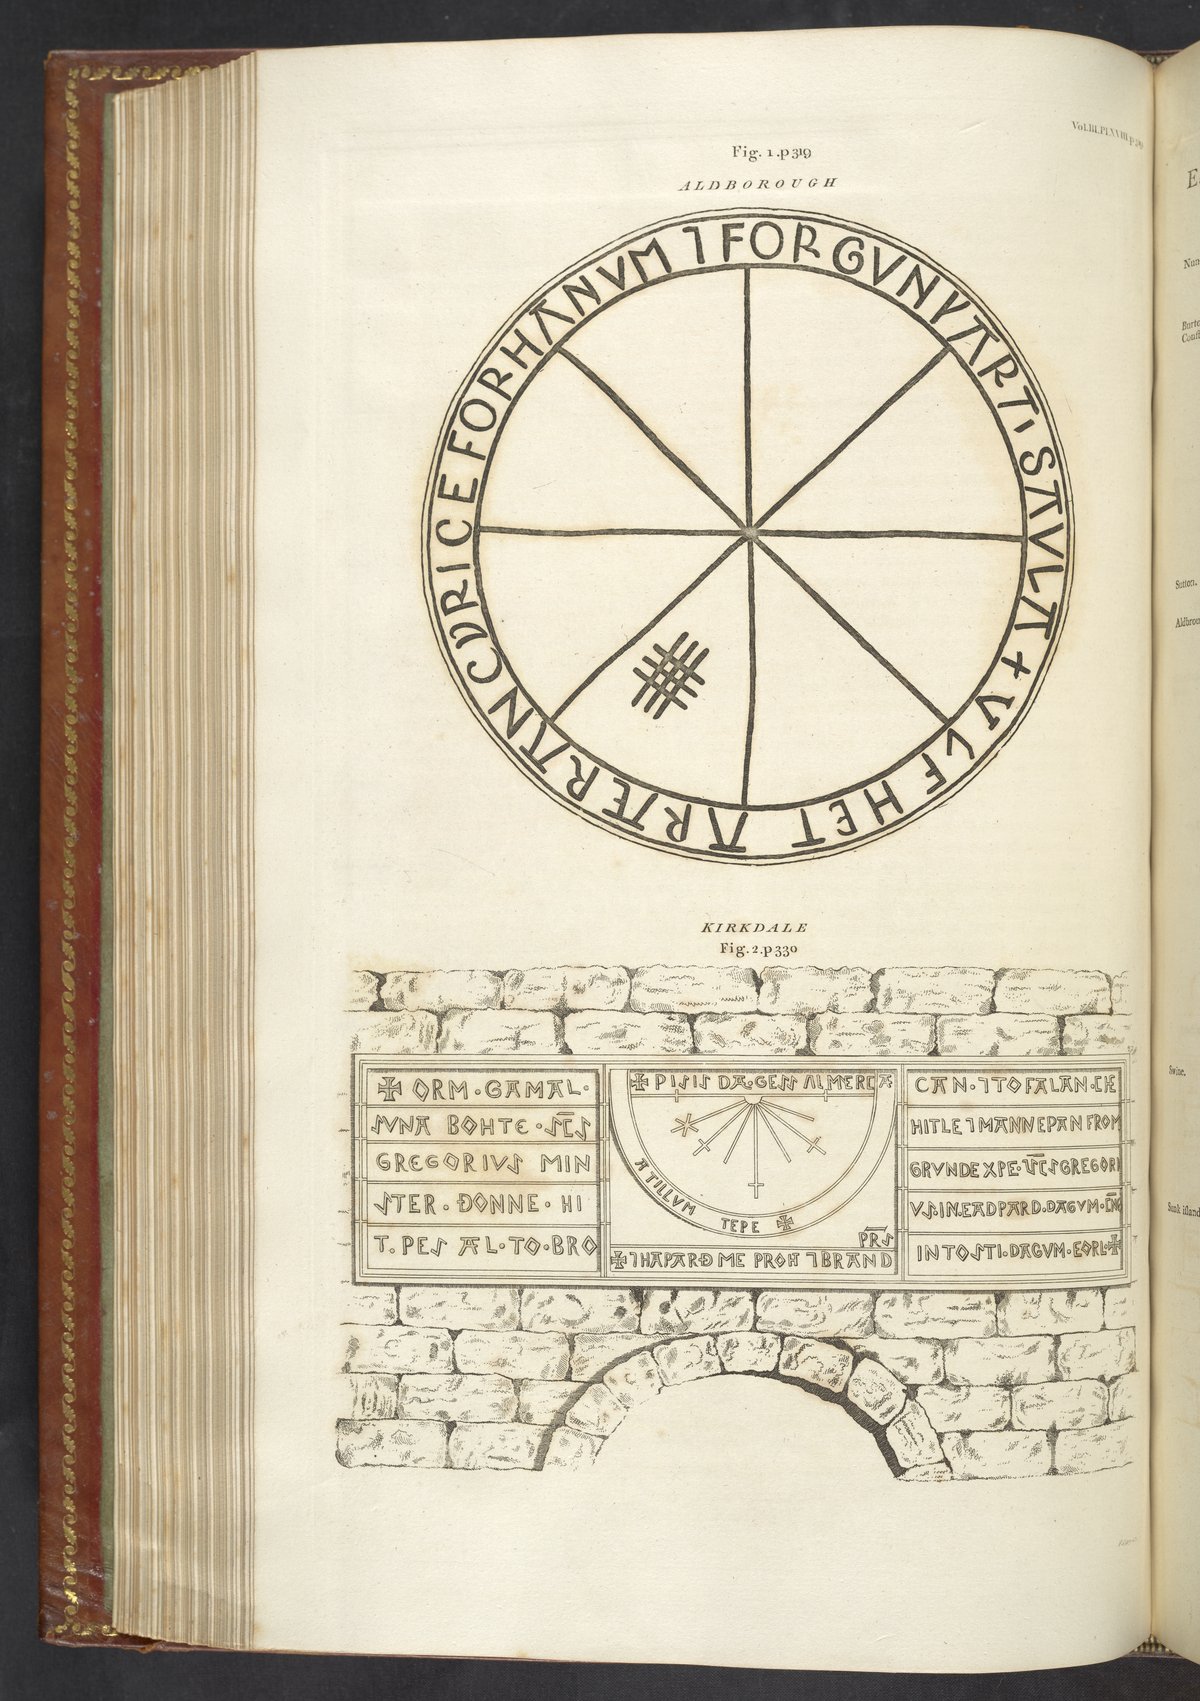 Vol.III.Pl.XVIII.p319
Fig. 1.p319
ALDBOROUGH
+ VLF HET ARŒRAN CVRICE FOR HANUM ⁊ FOR GUNVARTI SAULA
KIRKDALE
Fig.2.p330
✠ ORM·GAMAL·
SVNA BOHTE·S̅C̅S
GREGORIVS MIN
STER·ÐONNE·HI
T·PES ÆL·TO·BRO
✠ PISIS DA·GESS ALMERCA
A TILLVM
TEPE ✠
P̅R̅S
✠ ⁊ HAPARÐ ME PROH ⁊ BRAND
CAN·⁊TOFALAN·CHE
HITLE⁊MANNEPAN FROM
GRVNDE XPE·S̅C̅SGREGORI
VS·IN·EADPARD·DAGVM·C̅NG
INTOSTI·DAGVM·EORL·✠
Nun
Sutton.
Swine.
Sunk island